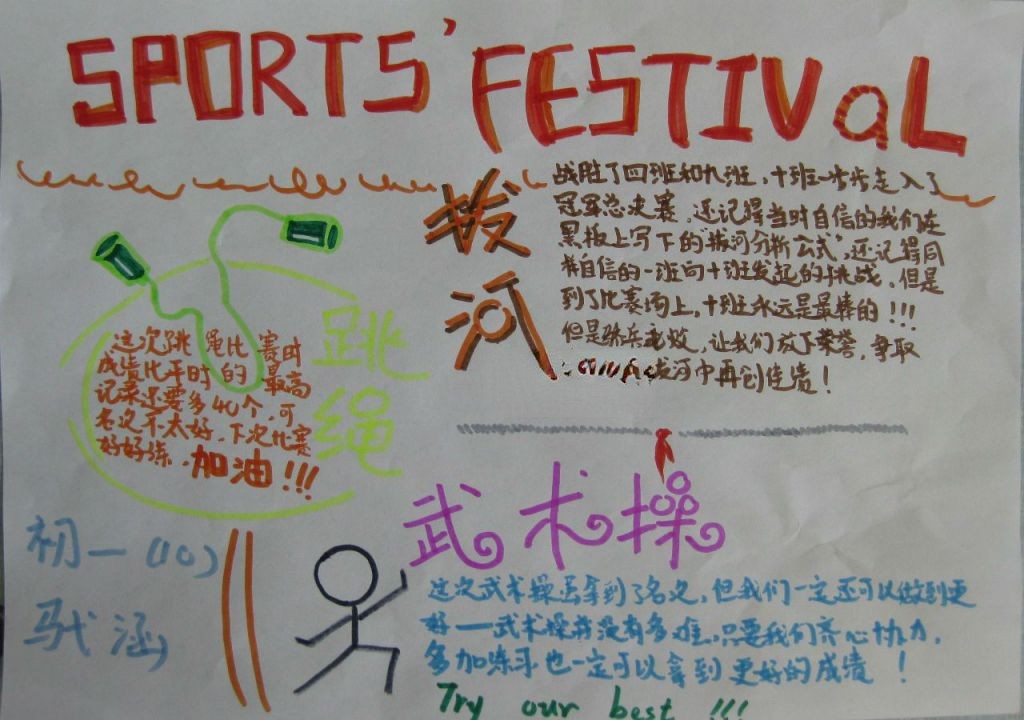 SPORTS' FESTIVaL
拔河
战胜了四班和九班,十班一步步走入了
冠军总决赛,还记得当时自信的我们在
黑板上写下的"拔河分析公式",还记得同
样自信的一班向十班发起的挑战,但是
到了比赛场上,十班永远是最棒的!!!
但是骄兵必败,让我们放下荣誉,争取
拔河中再创佳绩!
跳绳
这次跳绳比赛时
成绩比平时的最高
记录还要多40个,可
名次不太好,下次比赛
好好练,加油!!!
武术操
这次武术操虽拿到了名次,但我们一定还可以做到更
好——武术操并没有多难,只要我们齐心协力,
多加练习也一定可以拿到更好的成绩!
Try our best !!!
初一(10)
涵